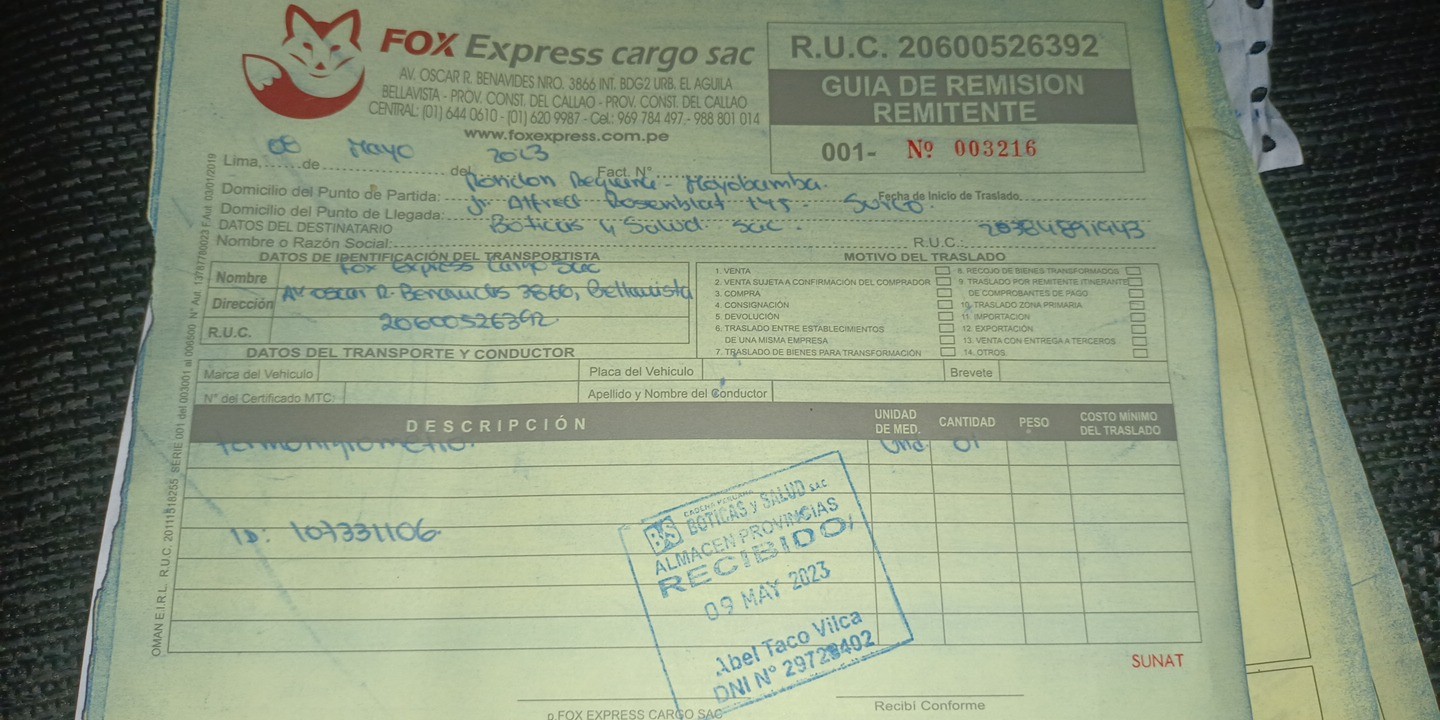 FOX Express cargo sac
AV. OSCAR R. BENAVIDES NRO. 3866 INT. BDG2 URB. EL AGUILA
BELLAVISTA - PROV. CONST. DEL CALLAO - PROV. CONST. DEL CALLAO
CENTRAL: (01) 644 0610 - (01) 620 9987 - Cel.: 969 784 497 - 988 801 014
www.foxexpress.com.pe
R.U.C. 20600526392
GUIA DE REMISION
REMITENTE
001- Nº 003216
Lima, 08 de Mayo del 2023 Fact. N°
Domicilio del Punto de Partida: Rondon Requena - Moyobamba. Fecha de Inicio de Traslado
Domicilio del Punto de Llegada: Jr. Alfred Rosenblat 145 - Surco.
DATOS DEL DESTINATARIO
Nombre o Razón Social: Boticas y Salud sac. R.U.C.: 20384891943
DATOS DE IDENTIFICACIÓN DEL TRANSPORTISTA
Nombre Fox Express Cargo Sac
Dirección Av oscar R. Benavides 3866, Bellavista
R.U.C. 20600526392
MOTIVO DEL TRASLADO
1. VENTA
2. VENTA SUJETA A CONFIRMACIÓN DEL COMPRADOR
3. COMPRA
4. CONSIGNACIÓN
5. DEVOLUCIÓN
6. TRASLADO ENTRE ESTABLECIMIENTOS
DE UNA MISMA EMPRESA
7. TRASLADO DE BIENES PARA TRANSFORMACIÓN
8. RECOJO DE BIENES TRANSFORMADOS
9. TRASLADO POR REMITENTE ITINERANTE
DE COMPROBANTES DE PAGO
10. TRASLADO ZONA PRIMARIA
11. IMPORTACIÓN
12. EXPORTACIÓN
13. VENTA CON ENTREGA A TERCEROS
14. OTROS
DATOS DEL TRANSPORTE Y CONDUCTOR
Marca del Vehiculo Placa del Vehiculo Brevete
N° del Certificado MTC: Apellido y Nombre del Conductor
DESCRIPCIÓN UNIDAD DE MED. CANTIDAD PESO COSTO MÍNIMO DEL TRASLADO
Termohigrometro. Und. 01
ID: 107331106
CADENA PERUANA
BS BOTICAS y SALUD SAC
ALMACEN PROVINCIAS
RECIBIDO
09 MAY 2023
Abel Taco Vilca
DNI N° 29728402
SUNAT
p.FOX EXPRESS CARGO SAC
Recibí Conforme
OMAN E.I.R.L. R.U.C. 20111518255 SERIE 001 del 003001 al 006500 N° Aut. 13787780023 F.Aut. 03/01/2019